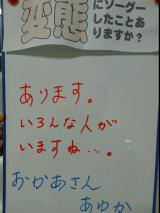 変態にソーグー
したことあ
りますか?
あります。
いろんな人が
いますね…。
おかあさん
あゆか